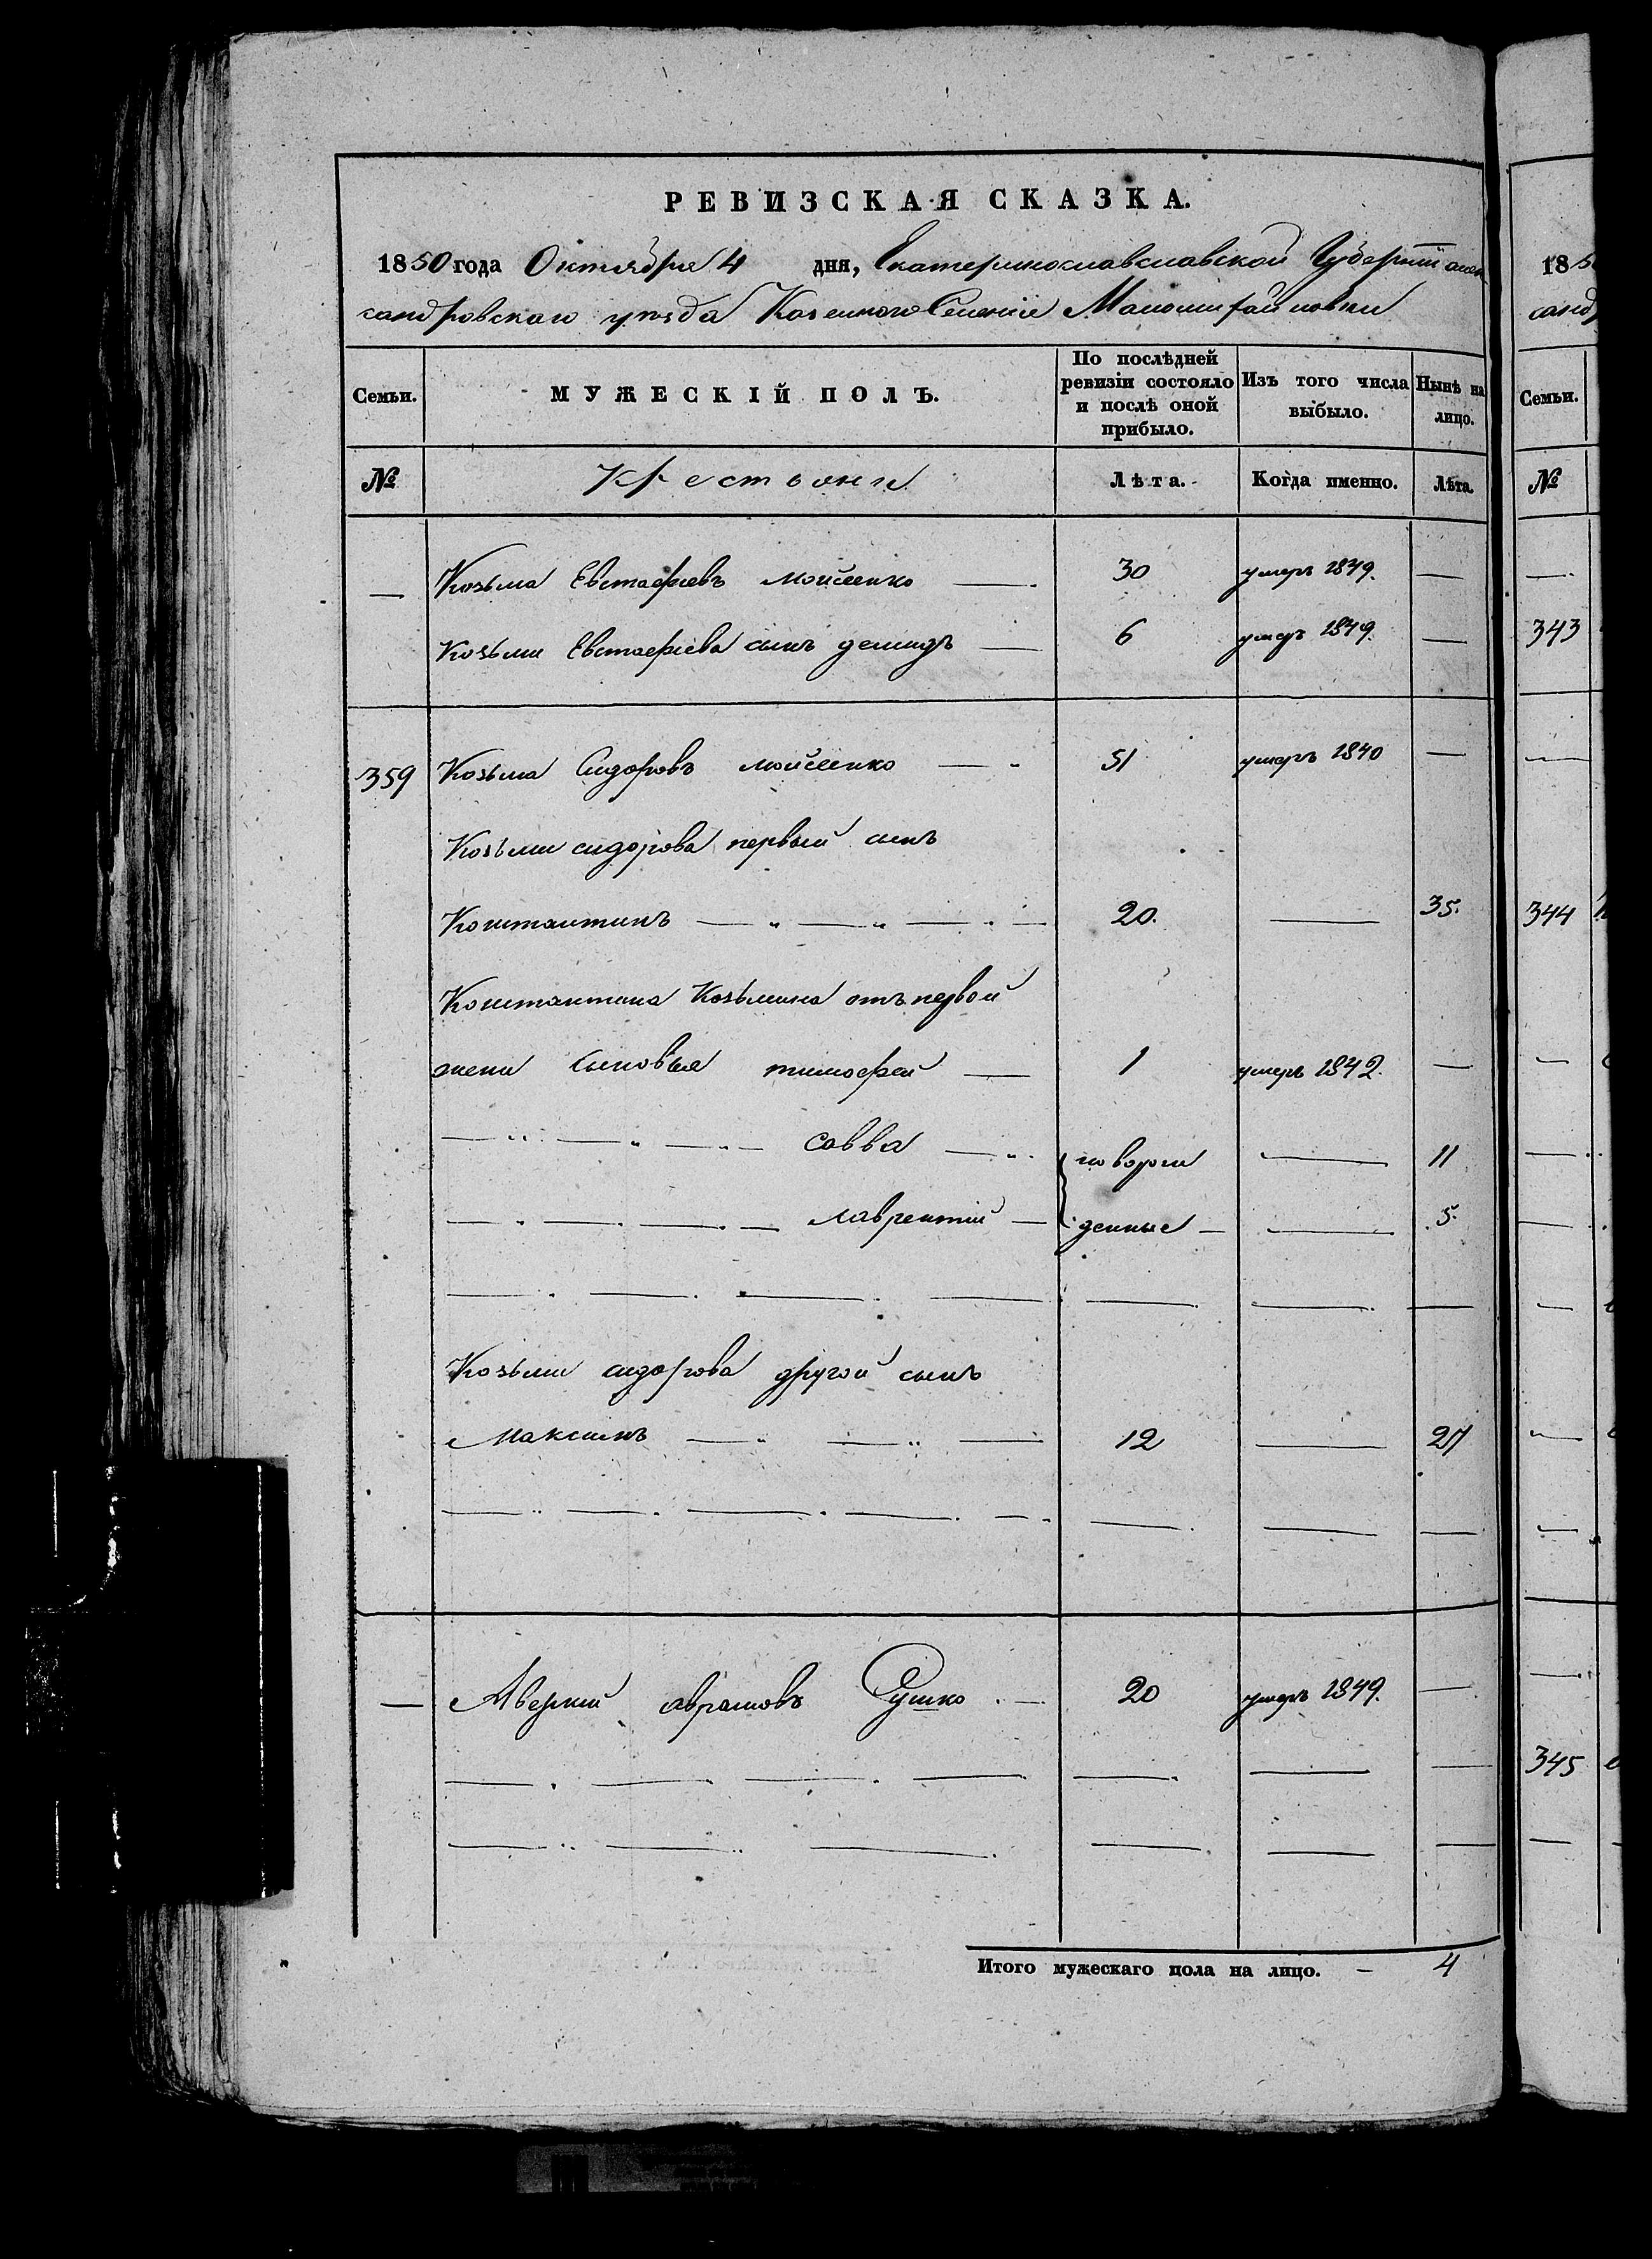 РЕВИЗСКАЯ СКАЗКА.
1850 года Октября 4 дня, Екатеринославславской Губернии алек
сандровскаго уезда Казенного Селения Маломихайловки
Семьи. МУЖЕСКІЙ ПОЛЪ. По послѣдней ревизіи состояло и послѣ оной прибыло. Изъ того числа выбыло. Нынѣ на лицо.
№ Крестьяне Лѣта. Когда именно. Лѣта.
— Козьма Евстафіевъ Мойсеенко — 30 умеръ 1849. —
Козьми Евстафіева сынъ демидъ — 6 умеръ 1849. —
359 Козьма Сидоровъ мойсеенко — 51 умеръ 1840 —
Козьми сидорова первый сынъ
Константинъ — 20. — 35.
Константина Козьмина отъ первой
жени сыновъя тимофей — 1 умеръ 1842. —
— савва — новорож — 11
— лаврентий — денные — — 5.
Козьми сидорова другой сынъ
Максимъ — 12 — 27
— Аверкий аврамовъ Сушко — 20 умеръ 1849. —
Итого мужескаго пола на лицо. — 4
1850
санд
Семьи.
№
343
344
345